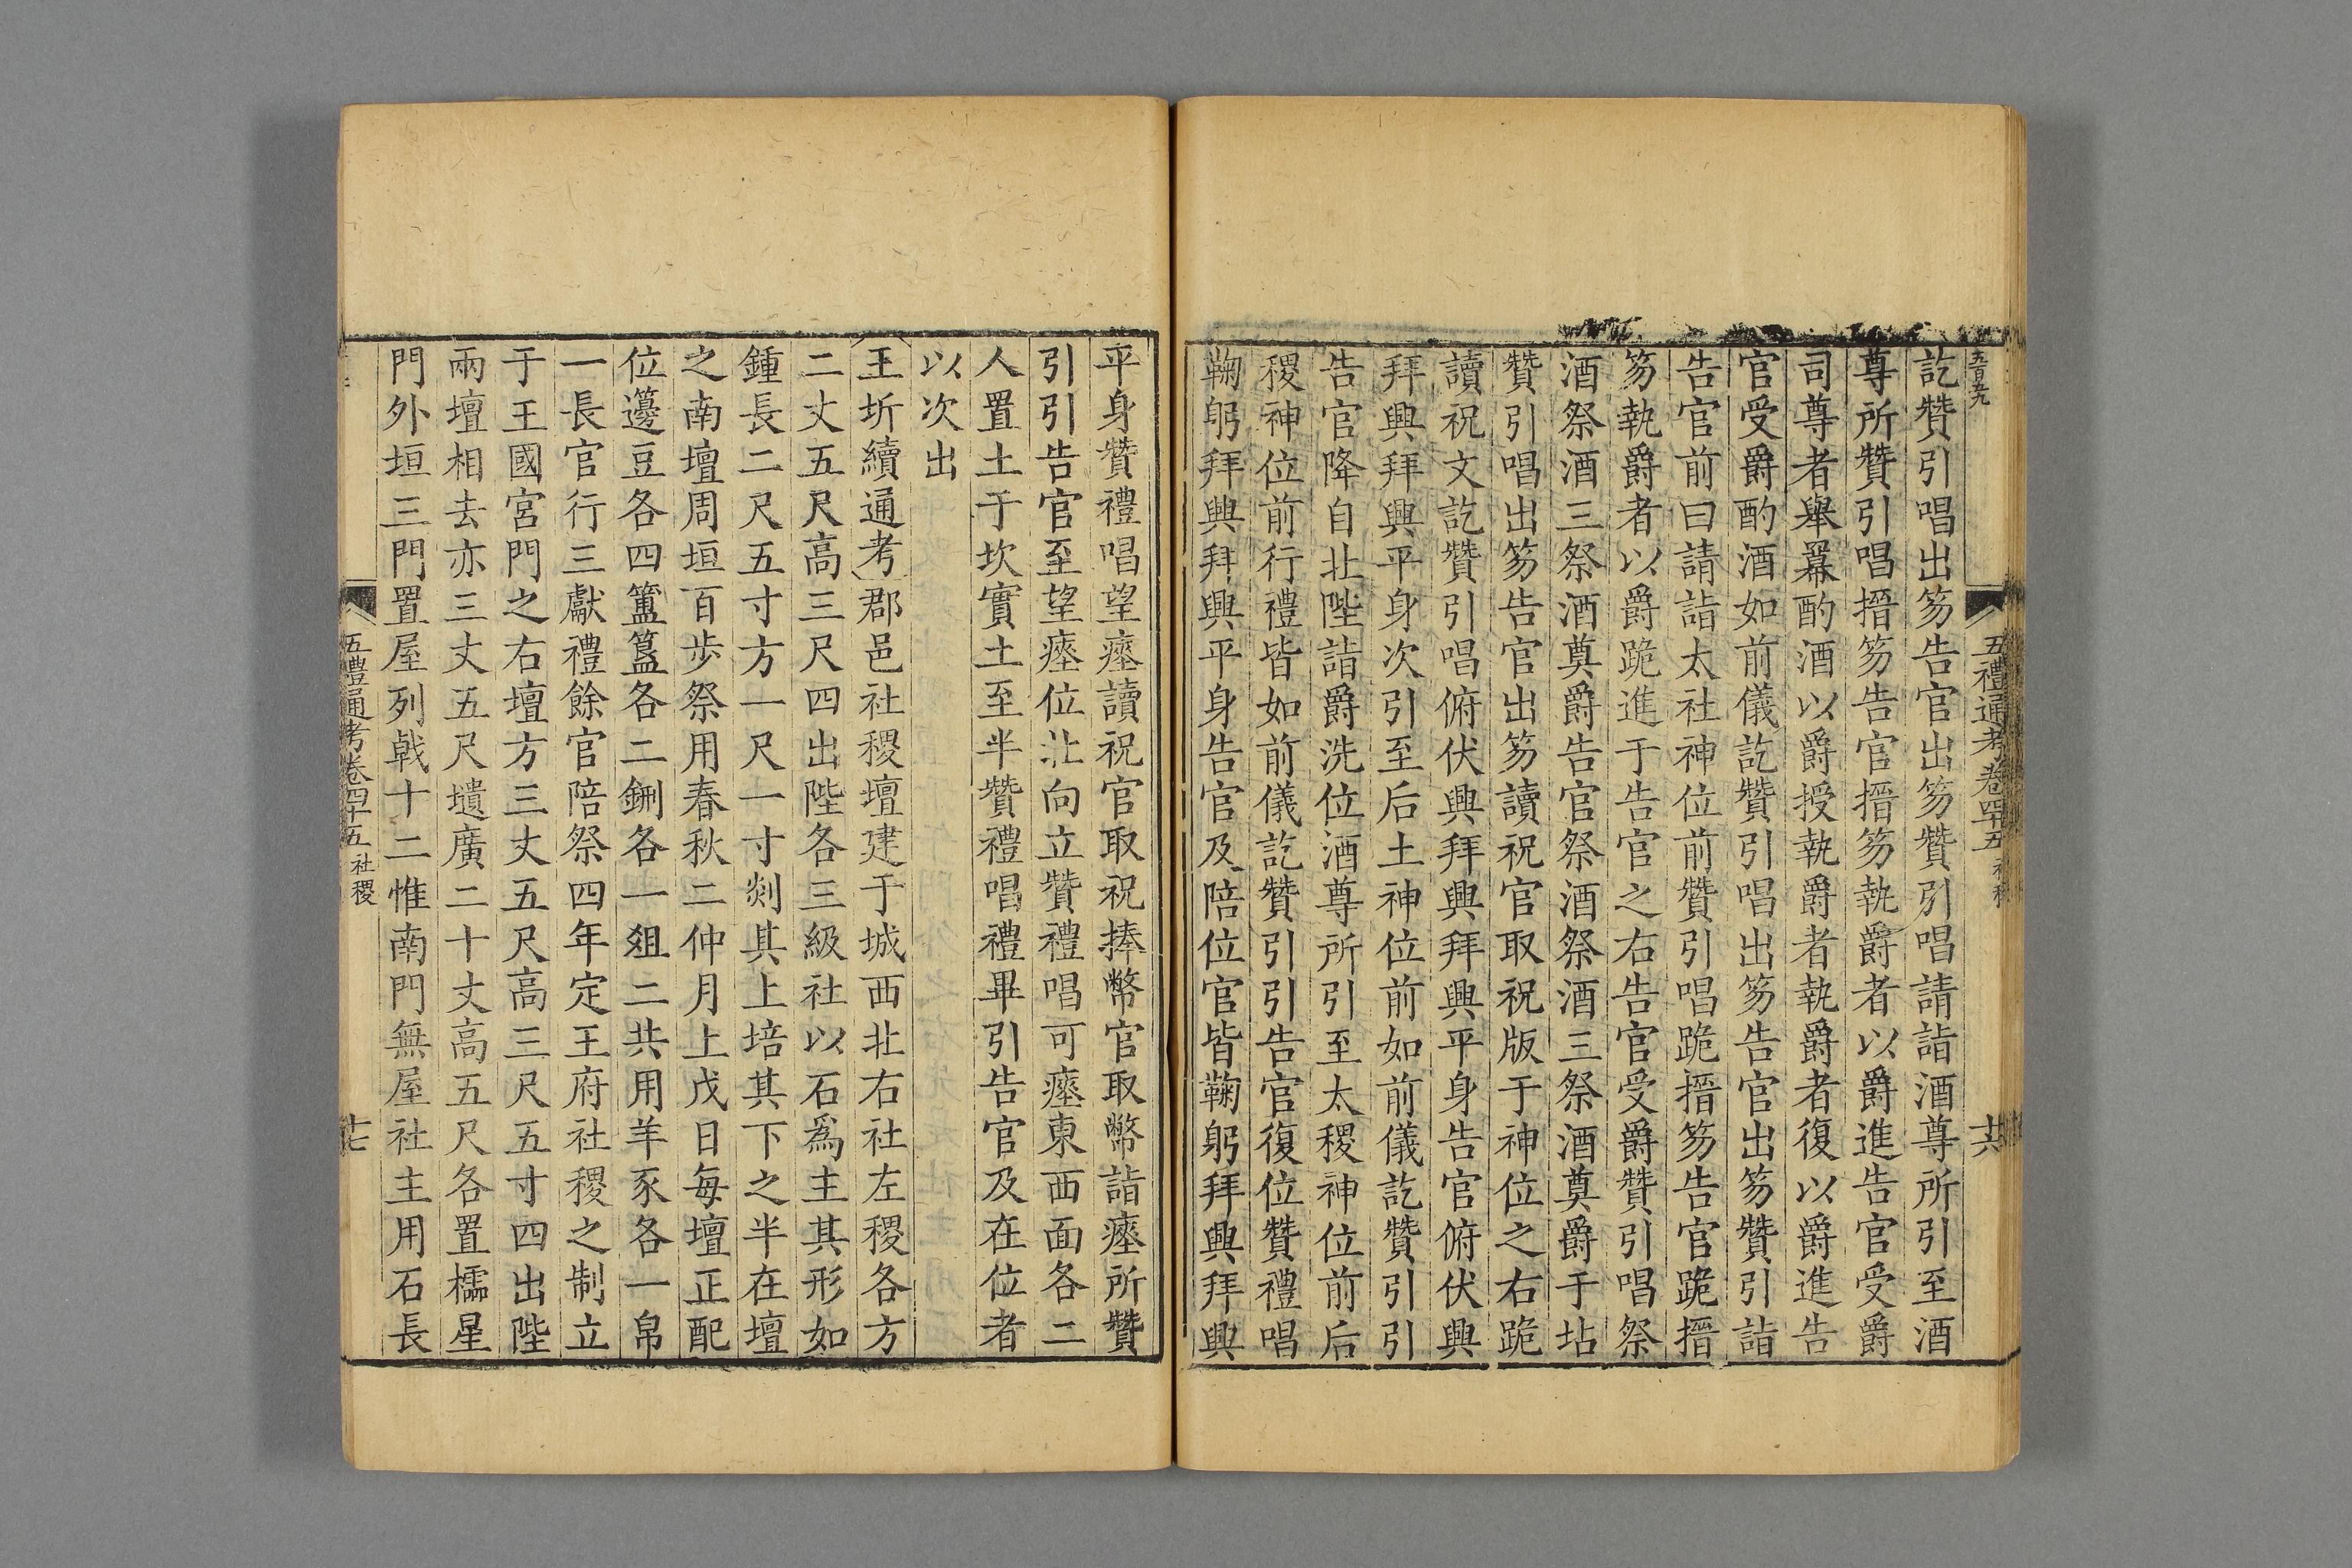 五百九
五禮通考卷四十五 社稷
十六
訖贊引唱出笏告官出笏贊引唱請詣酒尊所引至酒
尊所贊引唱搢笏告官搢笏執爵者以爵進告官受爵
司尊者舉羃酌酒以爵授執爵者執爵者復以爵進告
官受爵酌酒如前儀訖贊引唱出笏告官出笏贊引詣
告官前曰請詣太社神位前贊引唱跪搢笏告官跪搢
笏執爵者以爵跪進于告官之右告官受爵贊引唱祭
酒祭酒三祭酒奠爵告官祭酒祭酒三祭酒奠爵于坫
贊引唱出笏告官出笏讀祝官取祝版于神位之右跪
讀祝文訖贊引唱俯伏興拜興拜興平身告官俯伏興
拜興拜興平身次引至后土神位前如前儀訖贊引引
告官降自北陛詣爵洗位酒尊所引至太稷神位前后
稷神位前行禮皆如前儀訖贊引引告官復位贊禮唱
鞠躬拜興拜興平身告官及陪位官皆鞠躬拜興拜興
平身贊禮唱望瘞讀祝官取祝捧幣官取幣詣瘞所贊
引引告官至望瘞位北向立贊禮唱可瘞東西面各二
人置土于坎實土至半贊禮唱禮畢引告官及在位者
以次出
王圻續通考郡邑社稷壇建于城西北右社左稷各方
二丈五尺高三尺四出陛各三級社以石爲主其形如
鍾長二尺五寸方一尺一寸剡其上培其下之半在壇
之南壇周垣百步祭用春秋二仲月上戊日每壇正配
位籩豆各四簠簋各二鉶各一俎二共用羊豕各一帛
一長官行三獻禮餘官陪祭四年定王府社稷之制立
于王國宮門之右壇方三丈五尺高三尺五寸四出陛
兩壇相去亦三丈五尺壝廣二十丈高五尺各置櫺星
門外垣三門置屋列戟十二惟南門無屋社主用石長
五禮通考卷四十五 社稷
十七